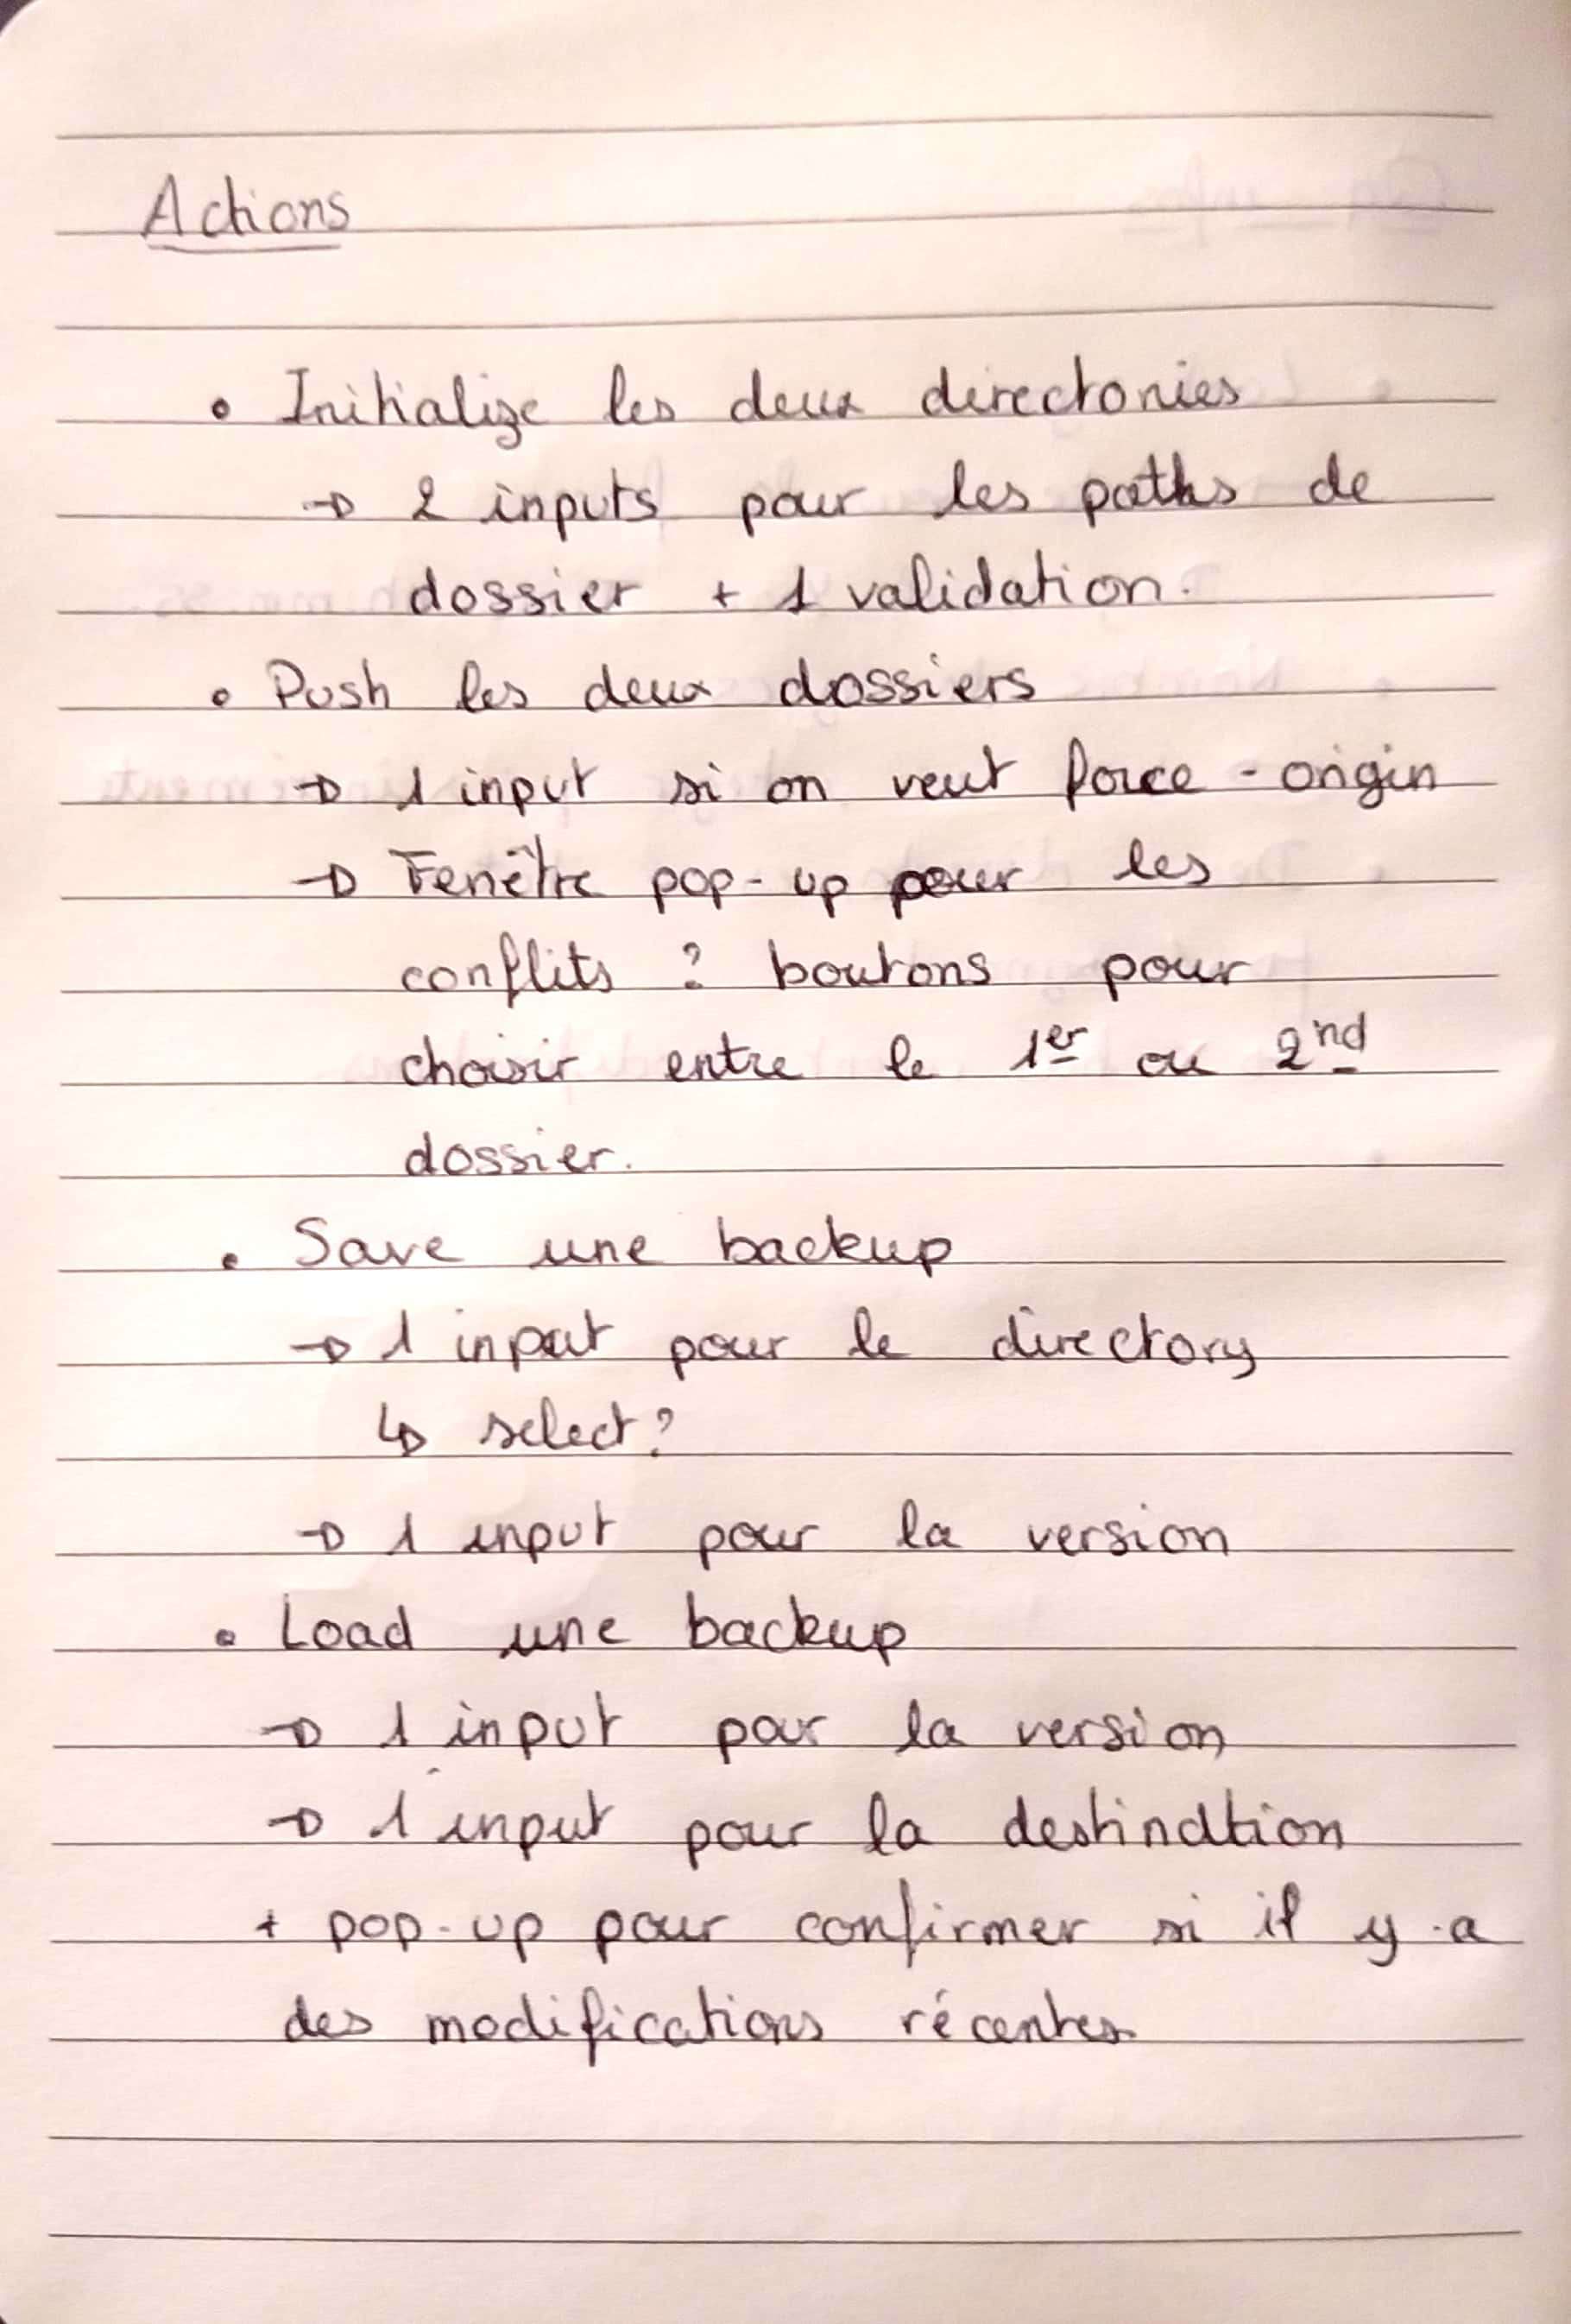 Actions
• Initialize les deux directories
→ 2 inputs pour les paths de
dossier + 1 validation.
• Push les deux dossiers
→ 1 input si on veut force-origin
→ Fenêtre pop-up pour les
conflits ? boutons pour
choisir entre le 1er ou 2nd
dossier.
• Save une backup
→ 1 input pour le directory
↳ select ?
→ 1 input pour la version
• Load une backup
→ 1 input pour la version
→ 1 input pour la destination
+ pop-up pour confirmer si il y a
des modifications récentes